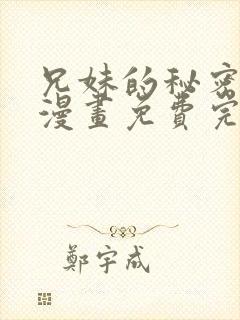 兄妹的秘密
漫畫免費完
鄭宇成